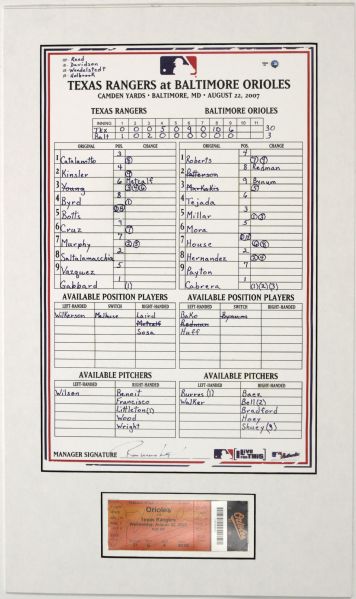 HP - Reed
1B - Davidson
2B - Wendelstedt
3B - Holbrook
TEXAS RANGERS at BALTIMORE ORIOLES
CAMDEN YARDS • BALTIMORE, MD • AUGUST 22, 2007
TEXAS RANGERS BALTIMORE ORIOLES
INNING 1 2 3 4 5 6 7 8 9 10 11
Tex 0 0 0 5 0 9 0 10 6 30
Balt 1 0 2 0 0 0 0 0 0 3
ORIGINAL POS. CHANGE ORIGINAL POS. CHANGE
1 Catalanotto 3 1 Roberts 4
2 Kinsler 4 2 Patterson 8 Redman
3 Young 6 Metcalf 3 Markakis 9 Bynum
4 Byrd 4 Tejada 6
5 Botts DH 5 Millar
6 Cruz 6 Mora 5
7 Murphy 7 7 House DH
8 Saltalamacchia 2 8 Hernandez 2
9 Vazquez 5 9 Payton 7
Gabbard (1) Cabrera (1)(2)(3)
AVAILABLE POSITION PLAYERS AVAILABLE POSITION PLAYERS
LEFT-HANDED SWITCH RIGHT-HANDED LEFT-HANDED SWITCH RIGHT-HANDED
Wilkerson Laird Bako Bynum
Metcalf Redman
Sosa Huff
AVAILABLE PITCHERS AVAILABLE PITCHERS
LEFT-HANDED RIGHT-HANDED LEFT-HANDED RIGHT-HANDED
Wilson Benoit Burres (1) Baez
Francisco Walker Bell (2)
Littleton (1) Bradford
Wood Hoey
Wright Shuey (3)
MANAGER SIGNATURE
I LIVE FOR THIS
Orioles
vs
Texas Rangers
Wednesday, August 22, 2007
Orioles